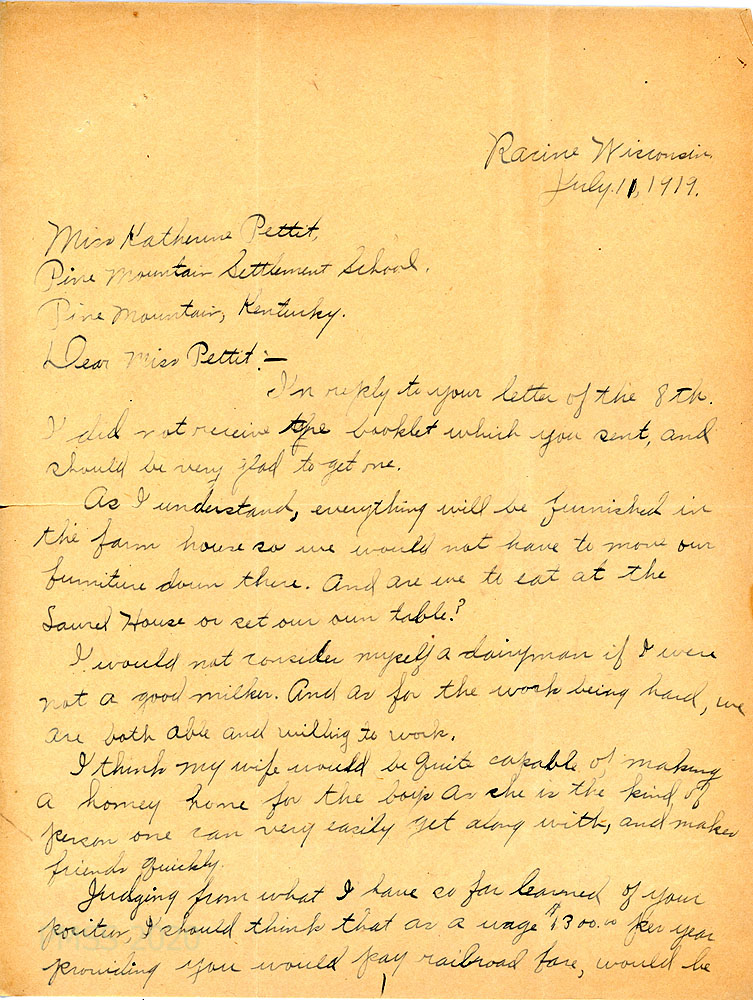 Racine Wisconsin,
July. 11, 1919.
Miss Katherine Pettit,
Pine Mountain Settlement School,
Pine Mountain, Kentucky.
Dear Miss Pettit:—
I'n reply to your letter of the 8th.
I did not receive the booklet which you sent, and
should be very glad to get one.
As I understand, everything will be furnished in
the farm house so we would not have to move our
furniture down there. And are we to eat at the
Laurel House or set our own table?
I would not consider myself a dairyman if I were
not a good milker. And as for the work being hard, we
are both able and willing to work.
I think my wife would be quite capable of making
a homey home for the boys as she is the kind of
person one can very easily get along with, and makes
friends quickly.
Judging from what I have so far learned of your
position, I should think that as a wage $1300.00 per year
providing you would pay railroad fare, would be
1